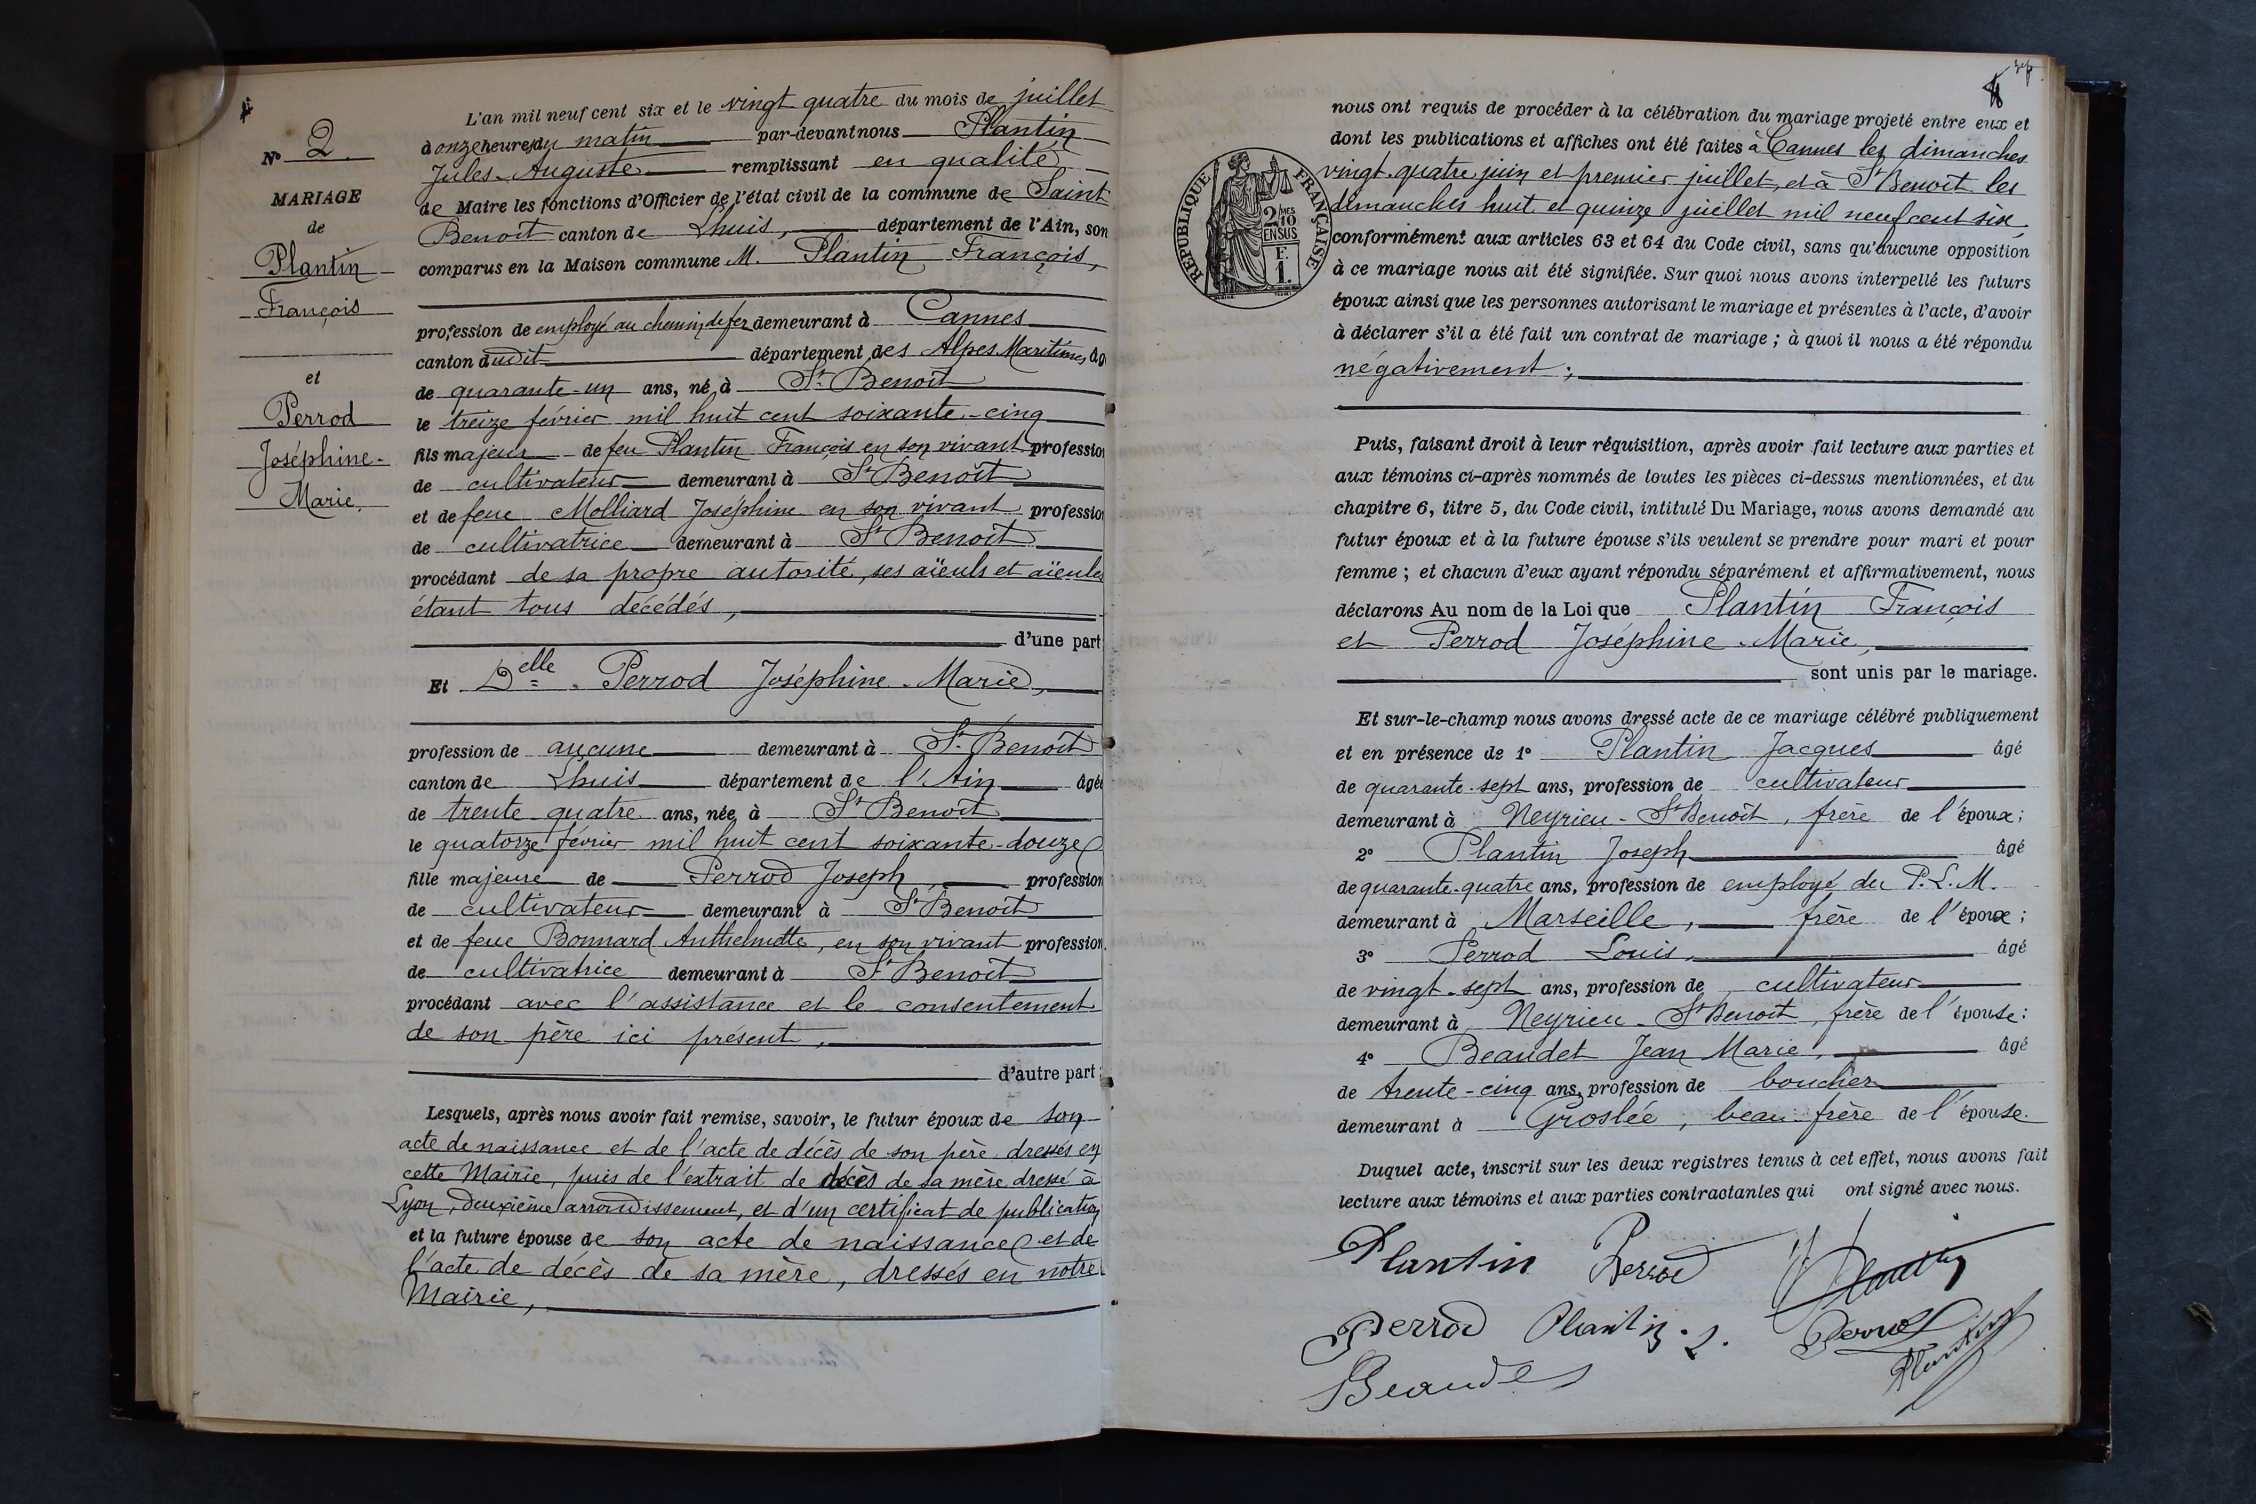 L'an mil neuf cent six et le vingt quatre du mois de juillet
à onze heures du matin par-devant nous Plantin
Jules-Auguste remplissant en qualité
de Maire les fonctions d'Officier de l'état civil de la commune de Saint
Benoît canton de Lhuis, département de l'Ain, son
comparus en la Maison commune M. Plantin François,
profession de employé au chemin de fer demeurant à Cannes
canton dudit département des Alpes Maritimes, âg
de quarante-un ans, né à St Benoît
le treize février mil huit cent soixante-cinq
fils majeur de feu Plantin François en son vivant profession
de cultivateur demeurant à St Benoît
et de feue Molliard Joséphine en son vivant profession
de cultivatrice demeurant à St Benoît
procédant de sa propre autorité, ses aïeuls et aïeules
étant tous décédés,
d'une part
Et Delle Perrod Joséphine-Marie,
profession de aucune demeurant à St Benoît
canton de Lhuis département de l'Ain âgée
de trente quatre ans, née à St Benoît
le quatorze février mil huit cent soixante-douze
fille majeure de Perrod Joseph, profession
de cultivateur demeurant à St Benoît
et de feue Bonnard Anthelmette, en son vivant profession
de cultivatrice demeurant à St Benoît
procédant avec l'assistance et le consentement
de son père ici présent,
d'autre part;
Lesquels, après nous avoir fait remise, savoir, le futur époux de son
acte de naissance et de l'acte de décès de son père dressés en
cette Mairie, puis de l'extrait de décès de sa mère dressé à
Lyon, deuxième arrondissement, et d'un certificat de publication
et la future épouse de son acte de naissance et de
l'acte de décès de sa mère, dressés en notre
Mairie,
No 2.
MARIAGE
de
Plantin
François
et
Perrod
Joséphine-
Marie.
nous ont requis de procéder à la célébration du mariage projeté entre eux et
dont les publications et affiches ont été faites à Cannes les dimanches
vingt-quatre juin et premier juillet, et à St Benoît les
dimanches huit et quinze juillet mil neuf cent six
conformément aux articles 63 et 64 du Code civil, sans qu'aucune opposition
à ce mariage nous ait été signifiée. Sur quoi nous avons interpellé les futurs
époux ainsi que les personnes autorisant le mariage et présentes à l'acte, d'avoir
à déclarer s'il a été fait un contrat de mariage; à quoi il nous a été répondu
négativement;
RÉPUBLIQUE FRANÇAISE
2/10MES
EN SUS
1 F.
Puis, faisant droit à leur réquisition, après avoir fait lecture aux parties et
aux témoins ci-après nommés de toutes les pièces ci-dessus mentionnées, et du
chapitre 6, titre 5, du Code civil, intitulé Du Mariage, nous avons demandé au
futur époux et à la future épouse s'ils veulent se prendre pour mari et pour
femme; et chacun d'eux ayant répondu séparément et affirmativement, nous
déclarons Au nom de la Loi que Plantin François
et Perrod Joséphine-Marie,
sont unis par le mariage.
Et sur-le-champ nous avons dressé acte de ce mariage célébré publiquement
et en présence de 1° Plantin Jacques âgé
de quarante-sept ans, profession de cultivateur
demeurant à Neyrieu-St Benoît, frère de l'époux;
2° Plantin Joseph âgé
de quarante-quatre ans, profession de employé du P.L.M.
demeurant à Marseille, frère de l'époux;
3° Perrod Louis, âgé
de vingt-sept ans, profession de cultivateur
demeurant à Neyrieu-St Benoît, frère de l'épouse:
4° Beaudet Jean Marie, âgé
de trente-cinq ans, profession de boucher
demeurant à Groslée, beau-frère de l'épouse.
Duquel acte, inscrit sur les deux registres tenus à cet effet, nous avons fait
lecture aux témoins et aux parties contractantes qui ont signé avec nous.
Plantin Perrod Plantin
Perrod Plantin J. Perrod
Plantin
Beaudet